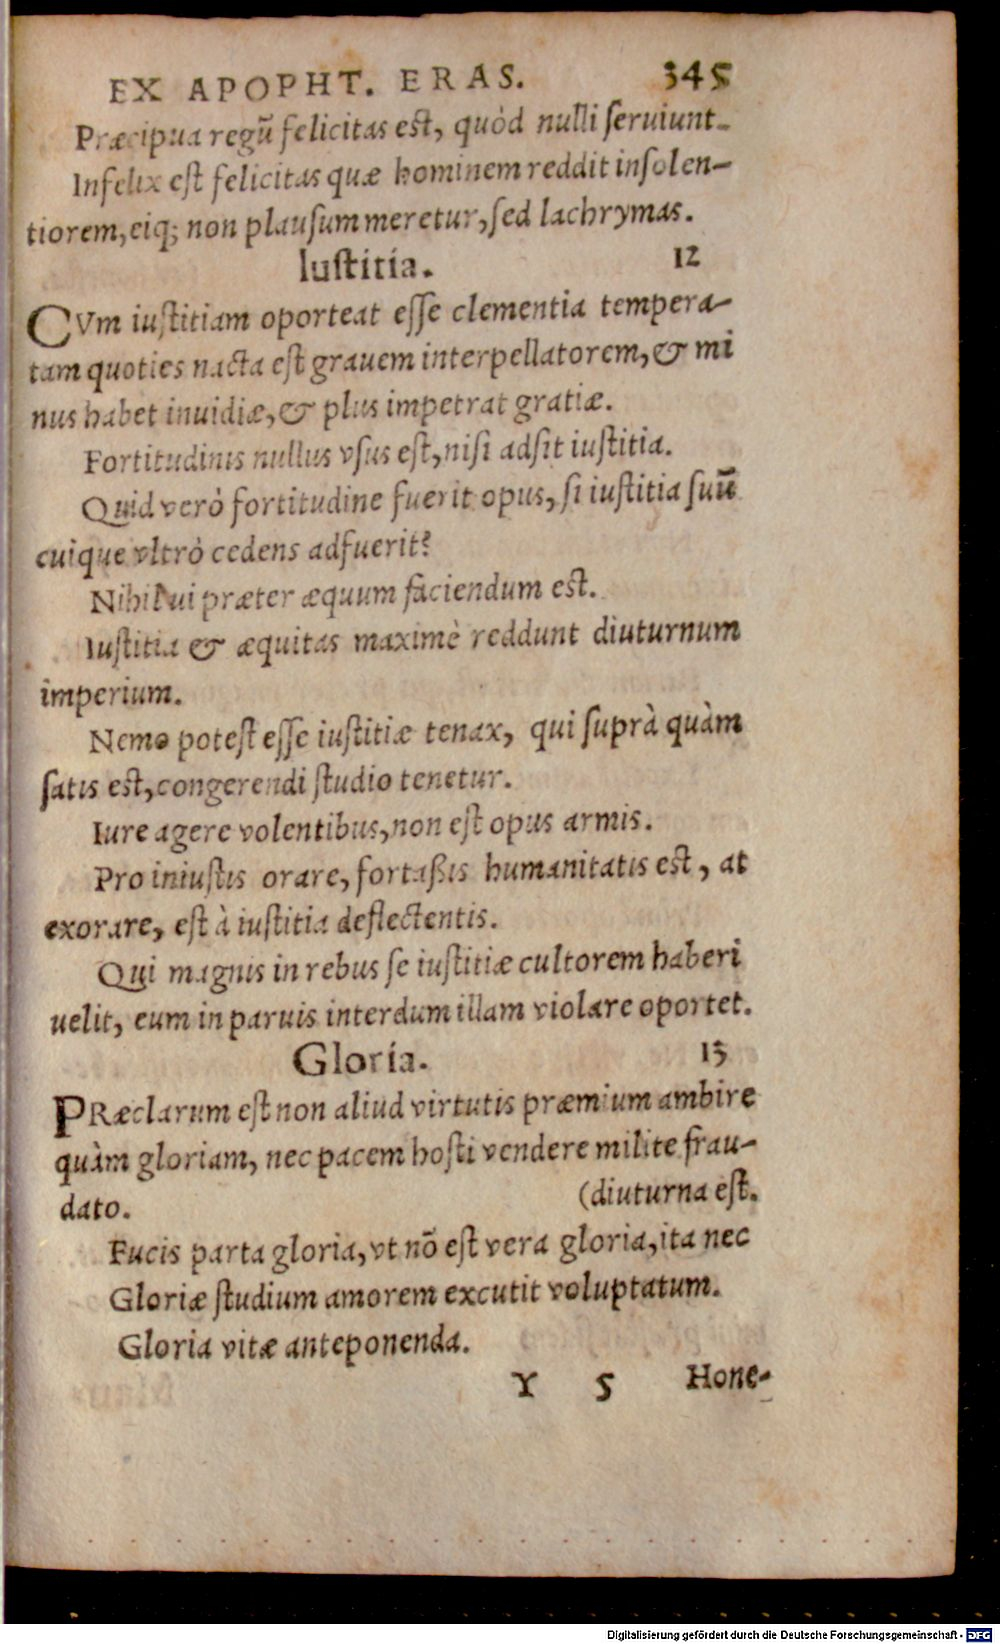 EX APOPHT. ERAS. 345
Præcipua regũ felicitas est, quòd nulli ſeruiunt.
Infelix eſt felicitas quæ hominem reddit inſolen-
tiorem, eiq; non plauſum meretur, ſed lachrymas.
Iuſtitia. 12
CVm iuſtitiam oporteat eſſe clementia tempera-
tam quoties nacta eſt grauem interpellatorem, & mi
nus habet inuidiæ, & plus impetrat gratiæ.
Fortitudinis nullus vſus eſt, niſi adſit iuſtitia.
Quid verò fortitudine fuerit opus, ſi iuſtitia ſuũ
cuique vltrò cedens adfuerit?
Nihil ui præter æquum faciendum est.
Iuſtitia & æquitas maximè reddunt diuturnum
imperium.
Nemo poteſt eſſe iuſtitiæ tenax, qui ſuprà quàm
ſatis est, congerendi ſtudio tenetur.
Iure agere volentibus, non eſt opus armis.
Pro iniuſtis orare, fortaßis humanitatis est, at
exorare, eſt à iuſtitia deflectentis.
Qui magnis in rebus ſe iuſtitiæ cultorem haberi
uelit, eum in paruis interdum illam violare oportet.
Gloria. 13
PRæclarum eſt non aliud virtutis præmium ambire
quàm gloriam, nec pacem hoſti vendere milite frau-
dato. (diuturna eſt.
Fucis parta gloria, vt nõ eſt vera gloria, ita nec
Gloriæ ſtudium amorem excutit voluptatum.
Gloria vitæ anteponenda.
Y 5 Hone-
Digitalisierung gefördert durch die Deutsche Forschungsgemeinschaft - DFG